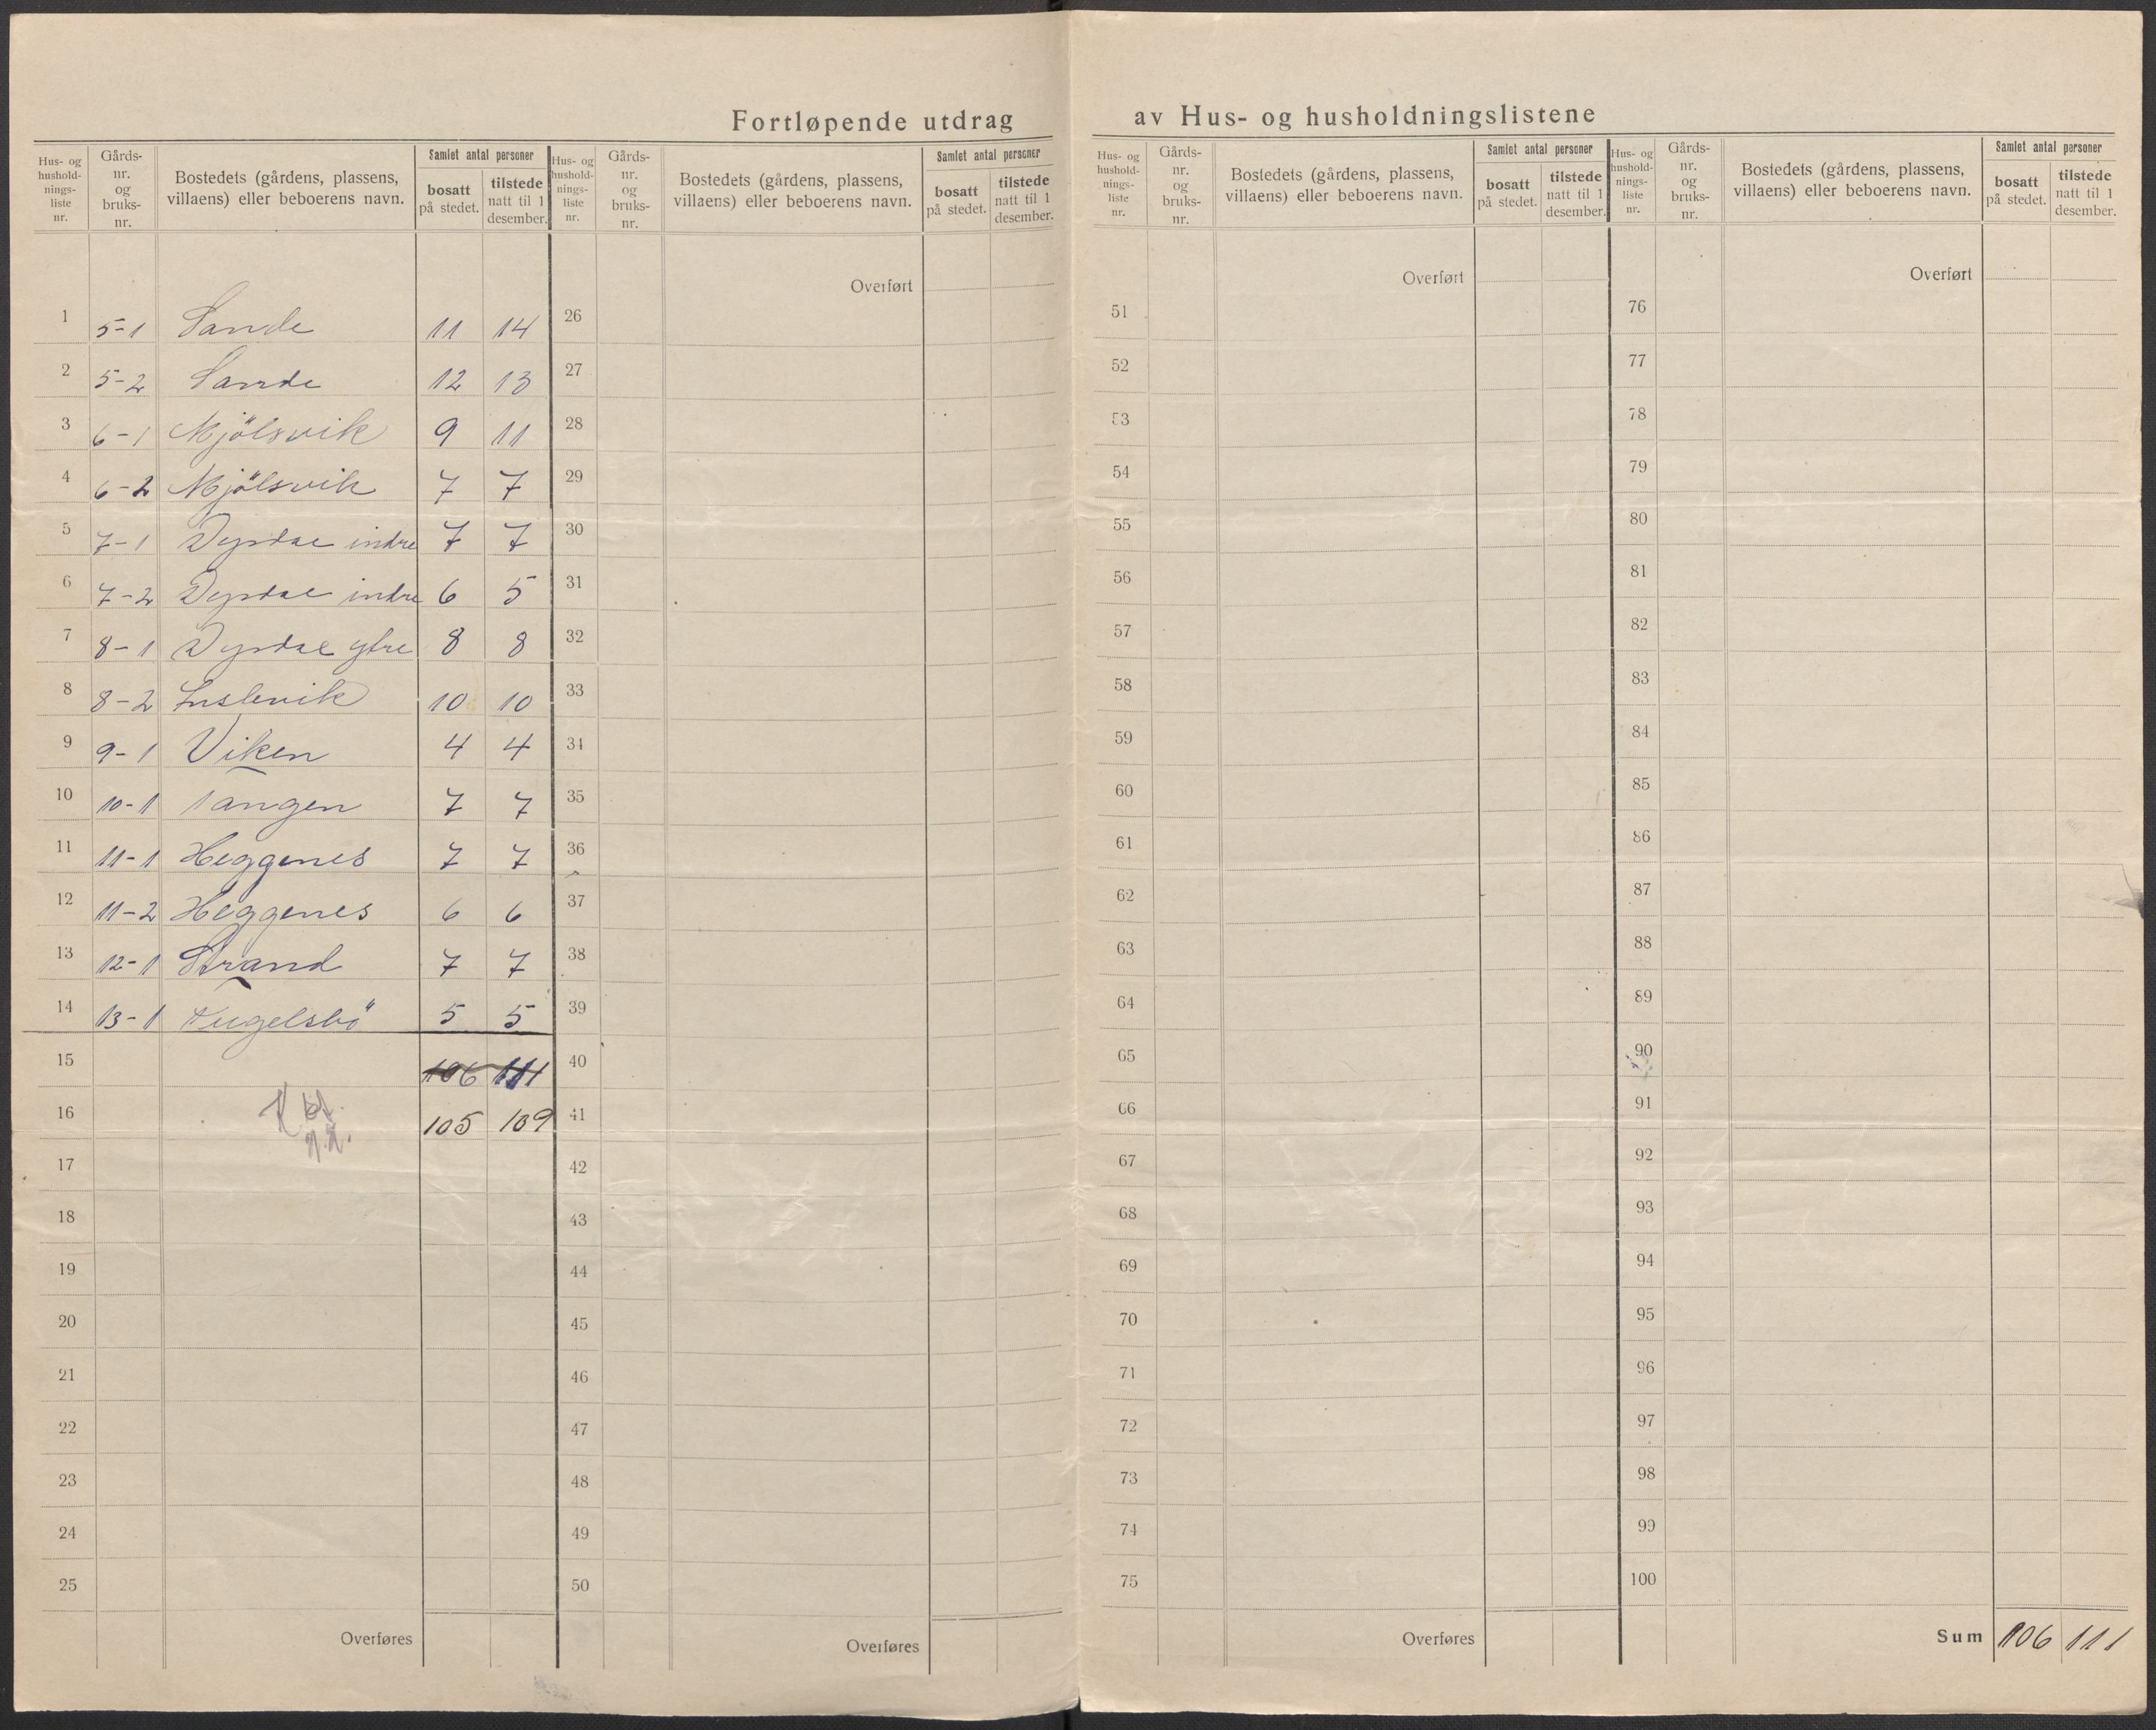 Fortløpende utdrag av Hus- og husholdningslistene
Hus- og hushold- nings- liste nr. | Gårds- nr. og bruks- nr. | Bostedets (gårdens, plassens, villaens) eller beboerens navn. | Samlet antal personer | bosatt på stedet. | tilstede natt til 1 desember.
1 5-1 Sande 11 14
2 5-2 Sande 12 13
3 6-1 Mjölsvik 9 11
4 6-2 Mjölsvik 7 7
5 7-1 Dyrdal indre 7 7
6 7-2 Dyrdal indre 6 5
7 8-1 Dyrdal ytre 8 8
8 8-2 10 10
9 9-1 Viken 4 4
10 10-1 Tangen 7 7
11 11-1 Heggenes 7 7
12 11-2 Heggenes 6 6
13 12-1 Strand 7 7
14 13-1 5 5
15 106 111
16 105 109
17
18
19
20
21
22
23
24
25
Overføres
Hus- og hushold- nings- liste nr. | Gårds- nr. og bruks- nr. | Bostedets (gårdens, plassens, villaens) eller beboerens navn. | Samlet antal personer | bosatt på stedet. | tilstede natt til 1 desember.
Overført
26
27
28
29
30
31
32
33
34
35
36
37
38
39
40
41
42
43
44
45
46
47
48
49
50
Overføres
Hus- og hushold- nings- liste nr. | Gårds- nr. og bruks- nr. | Bostedets (gårdens, plassens, villaens) eller beboerens navn. | Samlet antal personer | bosatt på stedet. | tilstede natt til 1 desember.
Overført
51
52
53
54
55
56
57
58
59
60
61
62
63
64
65
66
67
68
69
70
71
72
73
74
75
Overføres
Hus- og hushold- nings- liste nr. | Gårds- nr. og bruks- nr. | Bostedets (gårdens, plassens, villaens) eller beboerens navn. | Samlet antal personer | bosatt på stedet. | tilstede natt til 1 desember.
Overført
76
77
78
79
80
81
82
83
84
85
86
87
88
89
90
91
92
93
94
95
96
97
98
99
100
Sum 106 111